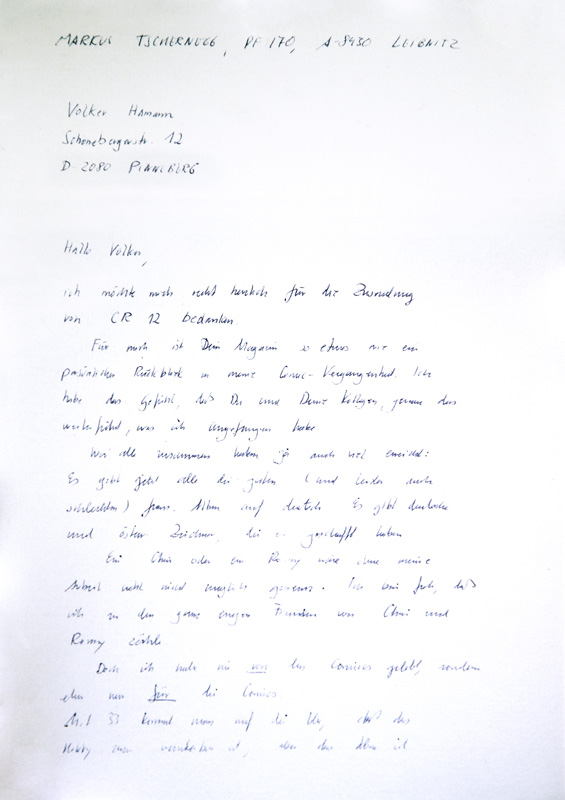 MARKUS TSCHERNEGG, PF 170, A-8430 LEIBNITZ
Volker Hamann
Schönebergerstr. 12
D-2080 PINNEBERG
Hallo Volker,
ich möchte mich recht herzlich für die Zusendung
von CR 12 bedanken
Für mich ist Dein Magazin so etwas wie ein
persönlicher Rückblick in meine Comic-Vergangenheit. Ich
habe das Gefühl, daß Du und Deine Kollegen, genau das
weiterführt, was ich angefangen habe.
Wir alle zusammen haben ja auch viel erreicht:
Es gibt jetzt alle die guten (und leider auch
schlechten) franz. Alben auf deutsch. Es gibt deutsche
und österr. Zeichner, die es geschafft haben
Ein Chris oder ein Romy wäre ohne meine
Arbeit nicht möglich gewesen. Ich bin froh, daß
ich zu den ganz engen Freunden von Chris und
Romy zähle.
Doch ich habe nie von den Comics gelebt, sondern
eben nur für die Comics.
Mit 33 kommt man auf die Idee, daß das
Hobby zwar wunderbar ist, aber das Leben ist